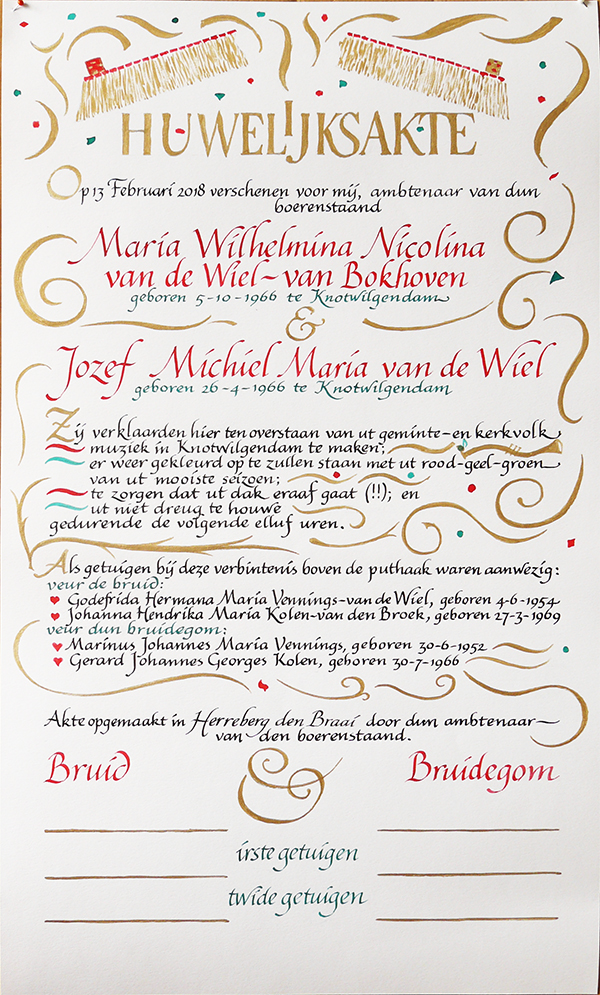 HUWELIJKSAKTE
Op 13 Februari 2018 verschenen voor mij, ambtenaar van dun
boerenstaand
Maria Wilhelmina Nicolina
van de Wiel - van Bokhoven
geboren 5-10-1966 te Knotwilgendam
&
Jozef Michiel Maria van de Wiel
geboren 26-4-1966 te Knotwilgendam
Zij verklaarden hier ten overstaan van ut geminte- en kerkvolk
muziek in Knotwilgendam te maken;
er weer gekleurd op te zullen staan met ut rood-geel-groen
van ut mooiste seizoen;
te zorgen dat ut dak eraaf gaat (!!); en
ut niet dreug te houwe
gedurende de volgende elluf uren.
Als getuigen bij deze verbintenis boven de puthaak waren aanwezig:
veur de bruid:
Godefrida Hermana Maria Vennings-van de Wiel, geboren 4-6-1954
Johanna Hendrika Maria Kolen-van den Broek, geboren 27-3-1969
veur dun bruidegom:
Marinus Johannes Maria Vennings, geboren 30-6-1952
Gerard Johannes Georges Kolen, geboren 30-7-1966
Akte opgemaakt in Herreberg den Braai door dun ambtenaar
van den boerenstaand.
Bruid & Bruidegom
irste getuigen
twide getuigen